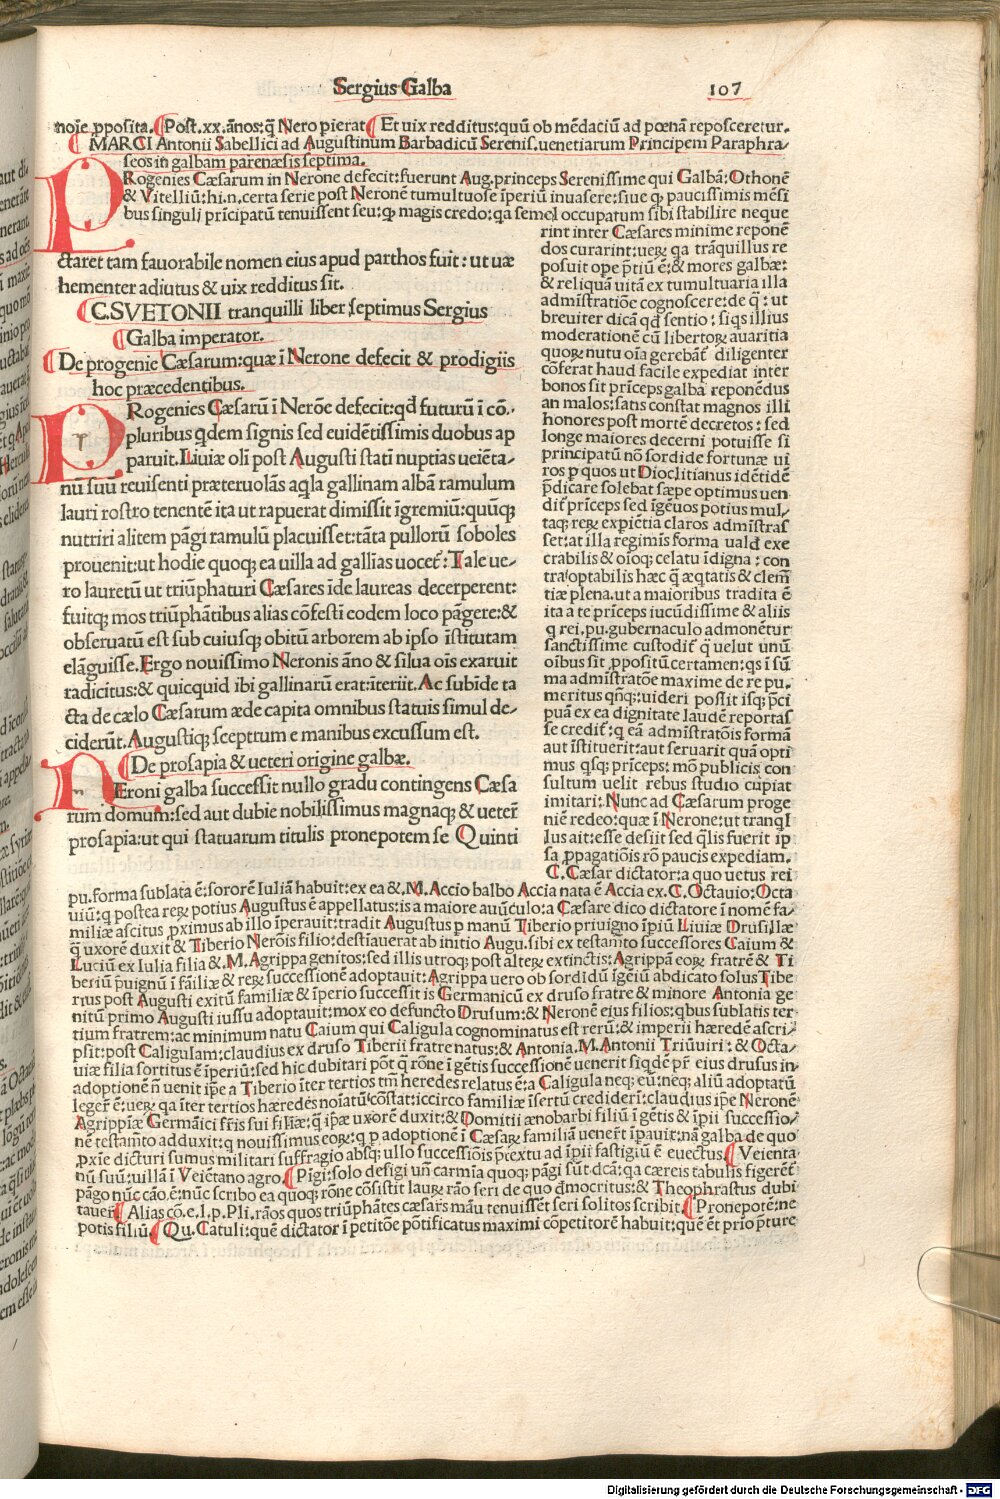 Sergius Galba 107
noīe ꝓposita. Post.xx.ānos:q̄ Nero pierat Et uix redditus:quū ob mēdaciū ad pœnam reposceretur.
MARCI Antonii Sabellici ad Augustinum Barbadicū Serenis.uenetiarum Principem Paraphra⸗
seos in galbam parenæsis septima.
PRogenies Cæsarum in Nerone defecit:fuerunt Aug.princeps Serenissime qui Galbā: Othonē
& Vitelliū:hi.n.certa serie post Neronē tumultuose īperiū inuasere:siue ꝙ paucissimis mēsi
bus singuli prīcipatū tenuissent seu:ꝙ magis credo:qa semel occupatum sibi stabilire neque
rint inter Cæsares minime reponē
dos curarint:ueꝝ qa trāquillus re
posuit ope p̄tiū ē:& mores galbæ:
& reliquā uitā ex tumultuaria illa
admīstratiōe cognoscere:de q̄ : ut
breuiter dicā qd sentio : siqs illius
moderationē cū libertoꝝ auaritia
quoꝝ nutu oīa gerebāt diligenter
cōferat haud facile expediat inter
bonos sit prīceps galba reponēdus
an malos:satis constat magnos illi
honores post mortē decretos : sed
longe maiores decerni potuisse si
principatū nō sordide fortunæ ui
ros p quos ut Dioclitianus idētidē
p̄dicare solebat sæpe optimus uen
dit prīceps sed īgēuos potius mul⸗
taqꝫ reꝝ expiētia claros admīstras
set:at illa regiminis forma ualde exe
crabilis & oīoqꝫ celatu īdigna : con
tra optabilis hæc q̄ æqtatis & clemē
tiæ plena.ut a maioribus tradita ē
ita a te prīceps iucūdissime & aliis
q rei.pu.gubernaculo admonētur
sanctissime custodit q̄ uelut unū
oībus sit ꝓpositū certamen:qs ī sū
ma admistratōe maxime de re pu.
meritus qnqꝫ:uideri possit isqꝫ p̄ci
puā ex ea dignitate laudē reportas
se credit:q eā admistratōis formā
aut īstituerit:aut seruarit quā opti
mus qsqꝫ prīceps: mō publicis con
sultum uelit rebus studio cupiat
imitari: Nunc ad Cæsarum proge
niē redeo:quæ ī Nerone:ut tranqī
lus ait:esse desiit sed qlis fuerit ip
sa ꝓpagatiōis rō paucis expediam.
C.Cæsar dictator:a quo uetus rei
ctaret tam fauorabile nomen eius apud parthos fuit: ut uæ
hementer adiutus & uix redditus sit.
C.SVETONII tranquilli liber septimus Sergius
Galba imperator.
De progenie Cæsarum:quæ ī Nerone defecit & prodigiis
hoc præcedentibus.
PRogenies Cæsarū ī Nerōe defecit:qd futurū ī cō⸗
pluribus qdem signis sed euidētissimis duobus ap
paruit.Liuiæ oli post Augusti stati nuptias ueiēta⸗
nū suū reuisenti præteruolās aqla gallinam albā ramulum
lauri rostro tenentē ita ut rapuerat dimissit īgremiū:quūqꝫ
nutriri alitem pāgi ramulū placuisset:tāta pullorū soboles
prouenit:ut hodie quoqꝫ ea uilla ad gallīas uocet : Tale ue⸗
ro lauretū ut triūphaturi Cæsares īde laureas decerperent:
fuitqꝫ mos triūphātibus alias cōfesti eodem loco pāgere:&
obseruatū est sub cuiusqꝫ obitū arborem ab ipso īstitutam
elāguisse.Ergo nouissimo Neronis āno & silua oīs exaruit
radicitus:& quicquid ibi gallinarū erat:īteriit.Ac subīde ta
cta de cælo Cæsarum æde capita omnibus statuis simul de⸗
ciderūt.Augustiqꝫ sceptrum e manibus excussum est.
De prosapia & ueteri origine galbæ.
NEroni galba successit nullo gradu contingens Cæsa
rum domum:sed aut dubie nobilissimus magnaqꝫ & ueterī
prosapia:ut qui statuarum titulis pronepotem se Quinti
pu.forma sublata ē:sororē Iuliā habuit:ex ea &.M.Accio balbo Accia nata ē Accia ex.C.Octauio:Octa
uiū:q postea reꝝ potius Augustus ē appellatus:is a maiore auūculo:a Cæsare dico dictatore ī nomē fa⸗
miliæ ascitus ꝓximus ab illo īperauit:tradit Augustus p manū Tiberio priuigno īpiū Liuiæ Drusillæ
q̄ uxorē duxit & Tiberio Nerōis filio:destīauerat ab initio Augu.sibi ex testamto successores Caium &
Luciū ex Iulia filia &.M.Agrippa genitos:sed illis utroqꝫ post alteꝝ extinctis:Agrippā eoꝝ fratrē & Ti
beriū p̄uignū ī fāiliæ & reꝝ successionē adoptauit:Agrippa uero ob sordidū īgeiū abdicato solus Tibe
rius post Augusti exitū familiæ & īperio successit is Germanicū ex druso fratre & minore Antonia ge
nitū primo Augusti iussu adoptauit:mox eo defuncto Drusum:& Neronē eius filios:qbus sublatis ter
tium fratrem:ac minimum natu Caium qui Caligula cognominatus est rerū:& imperii hæredē ascri⸗
psit:post Caligulam:claudius ex druso Tiberii fratre natus:& Antonia.M.Antonii Triūuiri : & Octa⸗
uiæ filia sortitus ē īperiū:sed hic dubitari pōt q̄ rōne ī gētis successionē uenerit siqdē pr̄ eius drusus in⸗
adoptionē n̄ uenit ip̄e a Tiberio īter tertios tm̄ heredes relatus ē:a Caligula neqꝫ eū:neqꝫ aliū adoptatū
legeꝝ ē:ueꝝ qa īter tertios hæredes noīatū cōstat:iccirco familiæ īsertū credideri:claudius ip̄e Neronē
Agrippiæ Germāici fr̄is sui filiæ:q̄ ip̄æ uxorē duxit:& Domitii ænobarbi filiū ī gētis & īpii successio⸗
nē testamto adduxit:q nouissimus eoꝝ:q p adoptionē ī Cæsaꝝ familiā uenert īpauit:nā galba de quo
ꝓxie dicturi sumus militari suffragio absqꝫ ullo successiōis p̄textu ad īpii fastigiū ē euectus. Veienta
nū suū:uillā ī Veiētano agro. Pīgi:solo defigi un̄ carmīa quoqꝫ pāgi sūt dcā:qa cæreis tabulis figerēt
pāgo nūc cāo.ē:nūc scribo ea quoqꝫ rōne cōsistit lauꝝ rāo seri de quo dmocritus:& Theophrastus dubi
tauer Alias cō.e.I.p.Pli.rāos quos triūphātes cæsaris māu tenuissēt seri solitos scribit. Pronepotē:ne
potis filiū. Qu.Catuli:quē dictator ī petitōe pōtificatus maximi cōpetitorē habuit:quē ēt prio p̄ture
Digitalisierung gefördert durch die Deutsche Forschungsgemeinschaft - DFG